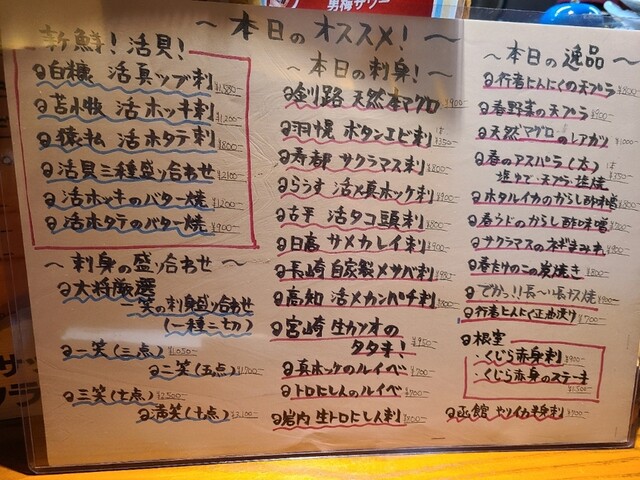 男梅サワー
〜本日のオススメ！〜
新鮮！活貝！
白糠 活真ツブ刺 ¥1,580-
苫小牧 活ホッキ刺 ¥1,200-
猿払 活ホタテ刺 ¥800-
活貝三種盛り合わせ ¥2,100-
活ホッキのバター焼 ¥1,200-
活ホタテのバター焼 ¥900-
〜刺身の盛り合わせ〜
大将厳選
笑の刺身盛り合わせ
(一種二切)
二笑(三点) ¥1,050-
二笑(五点) ¥1,700-
三笑(七点) ¥2,500-
満笑(十点) ¥3,100-
〜本日の刺身！〜
釧路 天然本マグロ ¥900-
羽幌 ボタンエビ刺 ¥350-
寿都 サクラマス刺 ¥800-
らうす 活〆真ホッケ刺 ¥900-
古平 活タコ頭刺 ¥800-
日高 サメカレイ刺 ¥900-
長崎 自家製〆サバ刺
高知 活〆カンパチ刺 ¥800-
宮崎 生カツオの
タタキ！ ¥950-
真ホッケのルイベ ¥700-
トロにしんのルイベ ¥700-
岩内 生トロにしん刺 ¥800-
〜本日の逸品〜
行者にんにくの天プラ ¥800-
春野菜の天プラ ¥900-
天然マグロのレアカツ ¥1,000-
春のアスパラ(太) ¥350-
塩ゆで・天プラ・塩焼
ホタルイカのからし酢味噌 ¥800-
春うどのからし酢味噌 ¥500-
サクラマスのネギまみれ ¥900-
春たけのこの炭焼き ¥800-
でかっ!!長〜い長ナス焼 ¥900-
行者にんにく正油漬け ¥700-
根室
・くじら赤身刺 ¥900-
・くじら赤身のステーキ
¥1,500-
函館 ヤリイカ半身刺 ¥700-